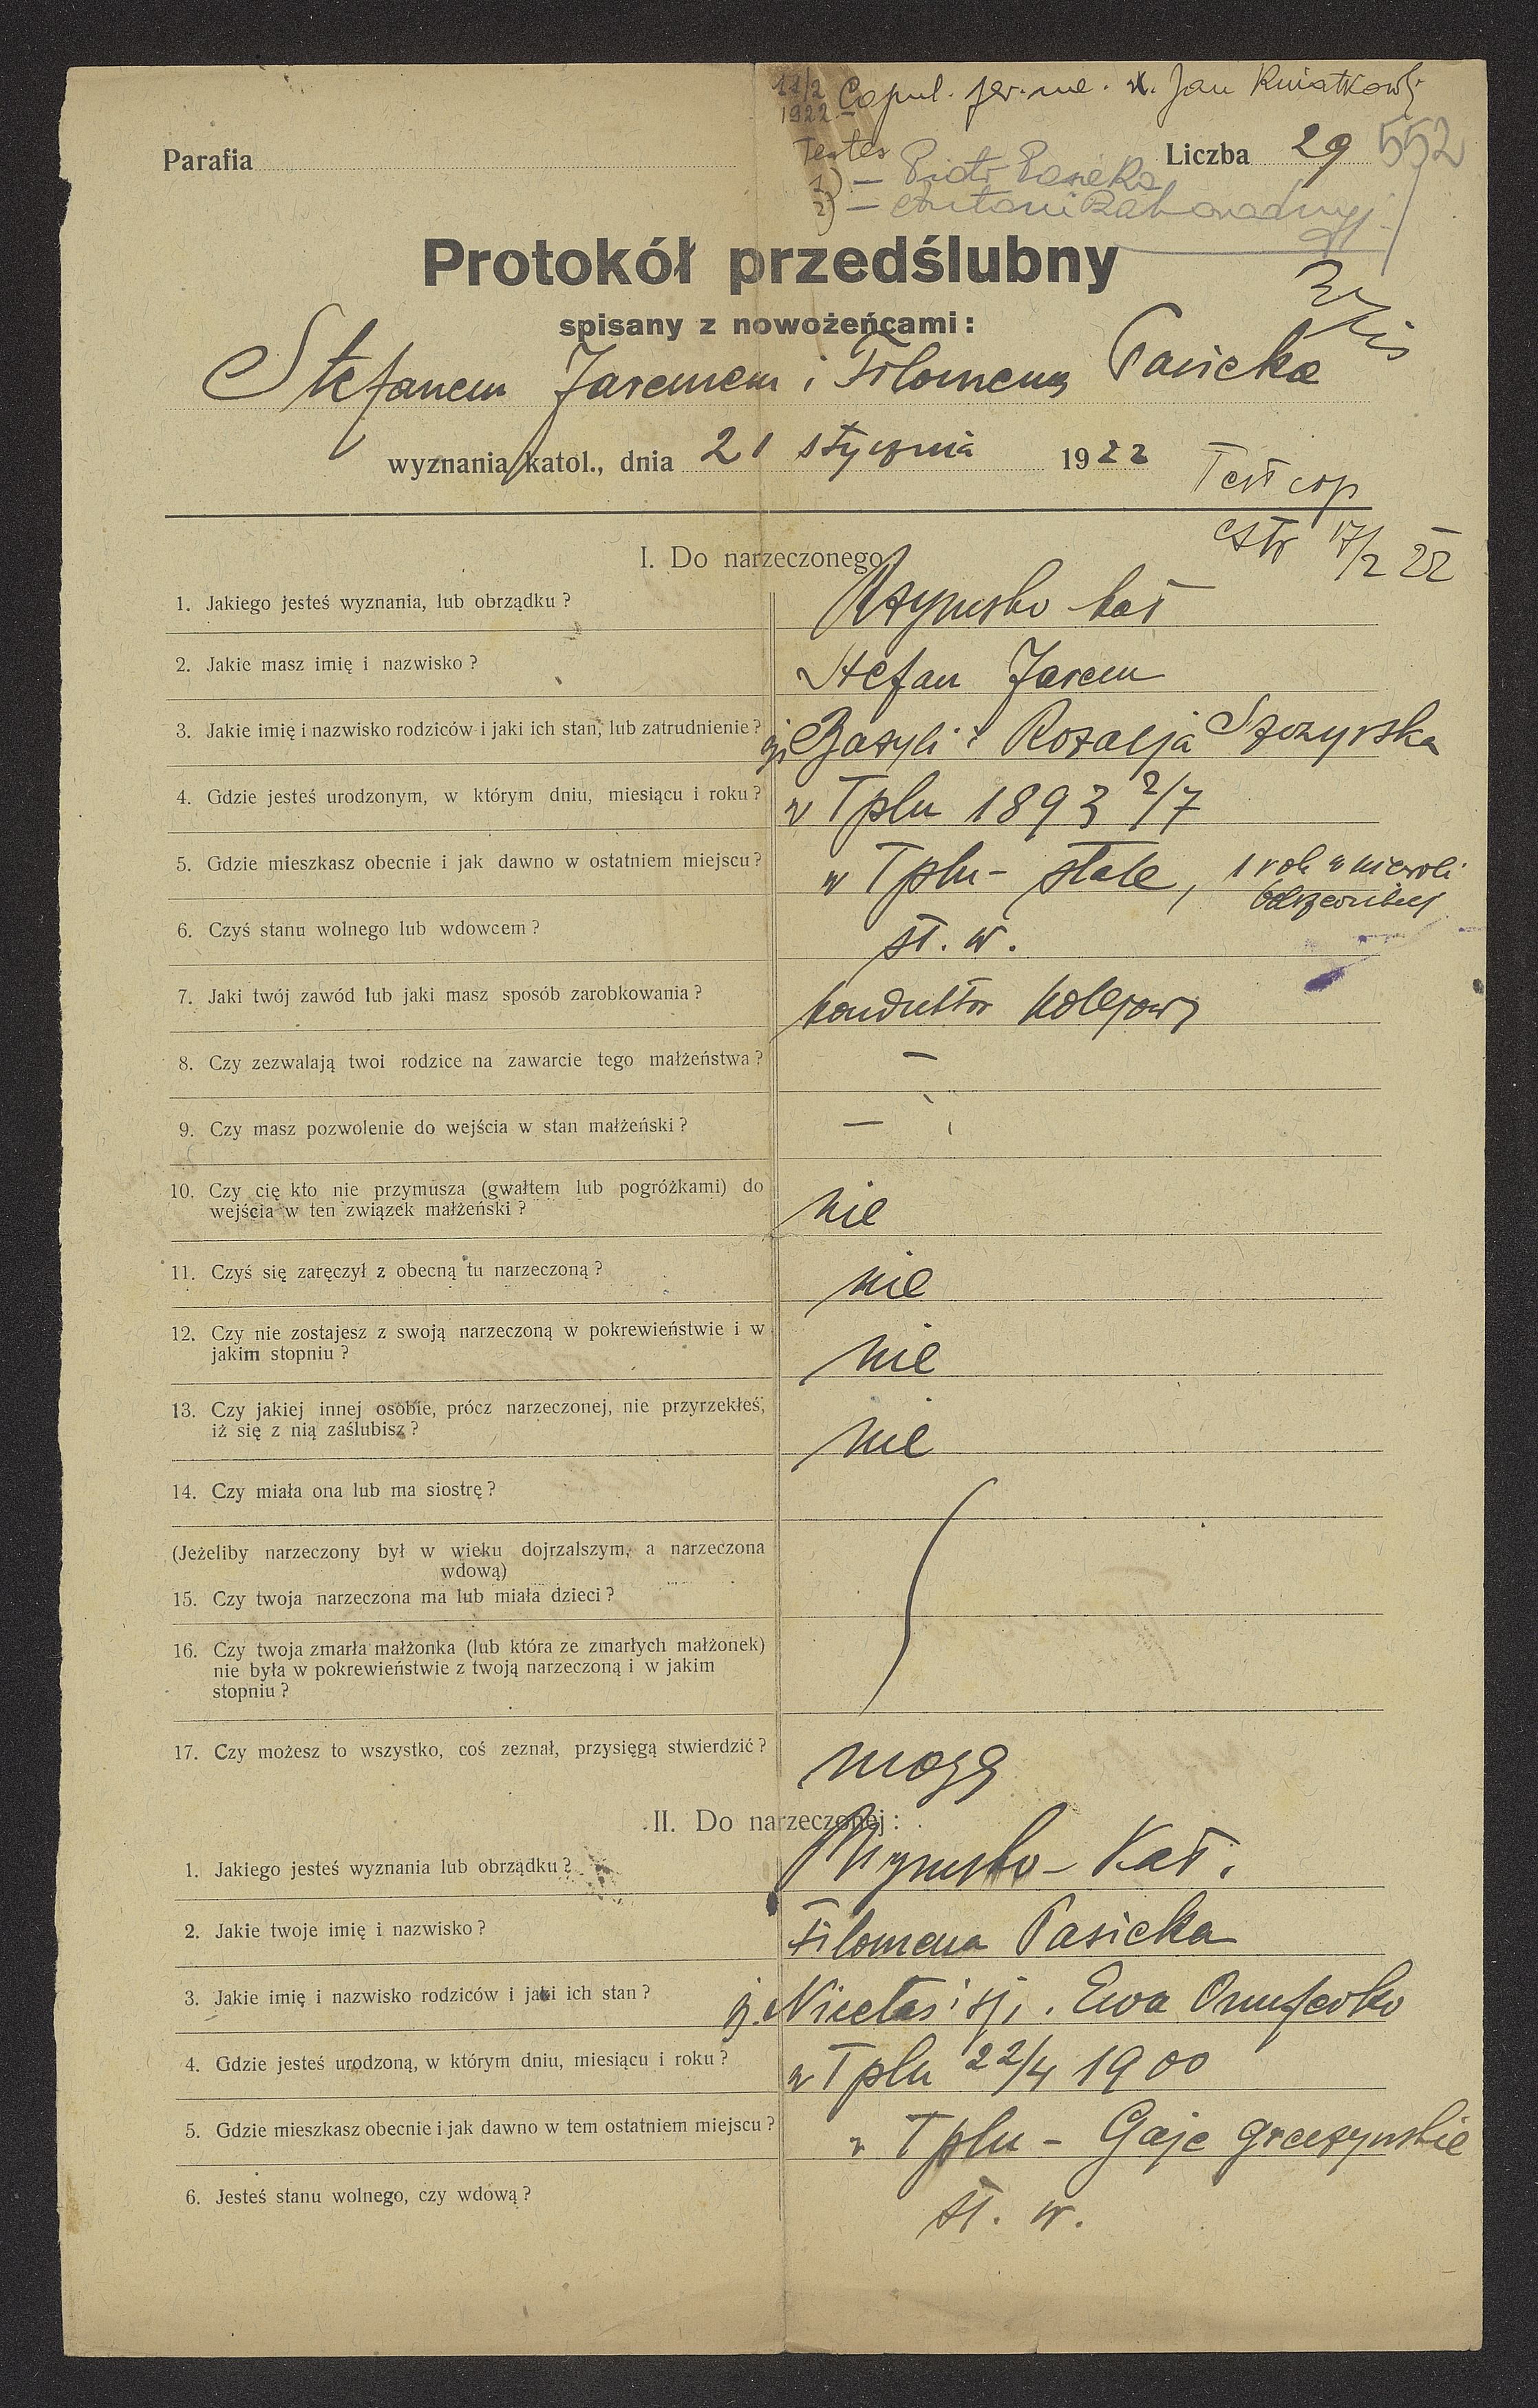 12/2 Copul. per. me. X. Jan Kwiatkowski
1922
Testes
Parafia
Liczba 29 552
1) — Piotr Pasieka
2) — Antoni
Protokół przedślubny
spisany z nowożeńcami:
Stefanem Jaremem i Filomeną Pasicka
wyznania katol., dnia 21 stycznia 1922
Test cop
17/2 22
I. Do narzeczonego
1. Jakiego jesteś wyznania, lub obrządku? Rzymsko kat
2. Jakie masz imię i nazwisko? Stefan Jarem
3. Jakie imię i nazwisko rodziców i jaki ich stan, lub zatrudnienie? Bazyli i Rozalja Szczyrska
4. Gdzie jesteś urodzonym, w którym dniu, miesiącu i roku? w Tplu 1893 2/7
5. Gdzie mieszkasz obecnie i jak dawno w ostatniem miejscu? w Tplu – stale, 1 rok w niewoli
6. Czyś stanu wolnego lub wdowcem? st. w.
7. Jaki twój zawód lub jaki masz sposób zarobkowania? konduktor kolejowy
8. Czy zezwalają twoi rodzice na zawarcie tego małżeństwa? —
9. Czy masz pozwolenie do wejścia w stan małżeński? —
10. Czy cię kto nie przymusza (gwałtem lub pogróżkami) do
wejścia w ten związek małżeński? nie
11. Czyś się zaręczył z obecną tu narzeczoną? nie
12. Czy nie zostajesz z swoją narzeczoną w pokrewieństwie i w
jakim stopniu? nie
13. Czy jakiej innej osobie, prócz narzeczonej, nie przyrzekłeś,
iż się z nią zaślubisz? nie
14. Czy miała ona lub ma siostrę?
(Jeżeliby narzeczony był w wieku dojrzalszym, a narzeczona
wdową)
15. Czy twoja narzeczona ma lub miała dzieci?
16. Czy twoja zmarła małżonka (lub która ze zmarłych małżonek)
nie była w pokrewieństwie z twoją narzeczoną i w jakim
stopniu?
17. Czy możesz to wszystko, coś zeznał, przysięgą stwierdzić? mogę
II. Do narzeczonej:
1. Jakiego jesteś wyznania lub obrządku? Rzymsko – Kat.
2. Jakie twoje imię i nazwisko? Filomena Pasicka
3. Jakie imię i nazwisko rodziców i jaki ich stan? Nicetas i Ewa
4. Gdzie jesteś urodzoną, w którym dniu, miesiącu i roku? w Tplu 22/4 1900
5. Gdzie mieszkasz obecnie i jak dawno w tem ostatniem miejscu? w Tplu – Gaje greczynskie
6. Jesteś stanu wolnego, czy wdową? st. w.